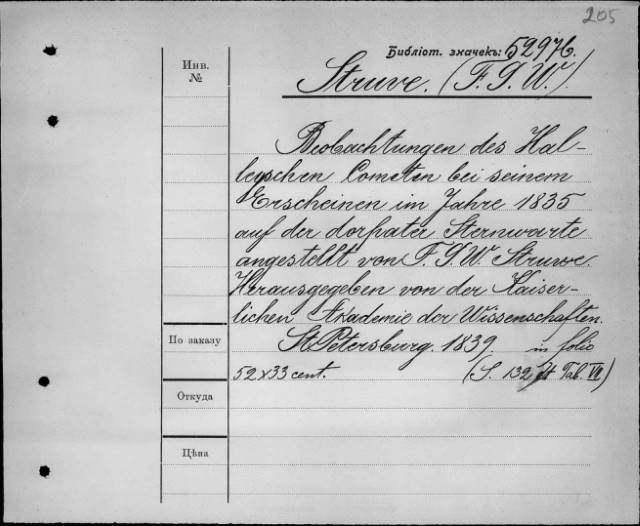 205
Библіот. значекъ: 52976.
Инв.
№
Struve. (F. G. W.).
Beobachtungen des Hal-
leyschen Cometen bei seinem
Erscheinen im Jahre 1835
auf der dorpater Sternwarte
angestellt von F. G. W. Struve.
Herausgegeben von der Kaiser-
lichen Akademie der Wissenschaften.
По заказу
St. Petersburg. 1839. in folio
52 x 33 cent. (S. 132 et Tab. VII)
Откуда
Цѣна